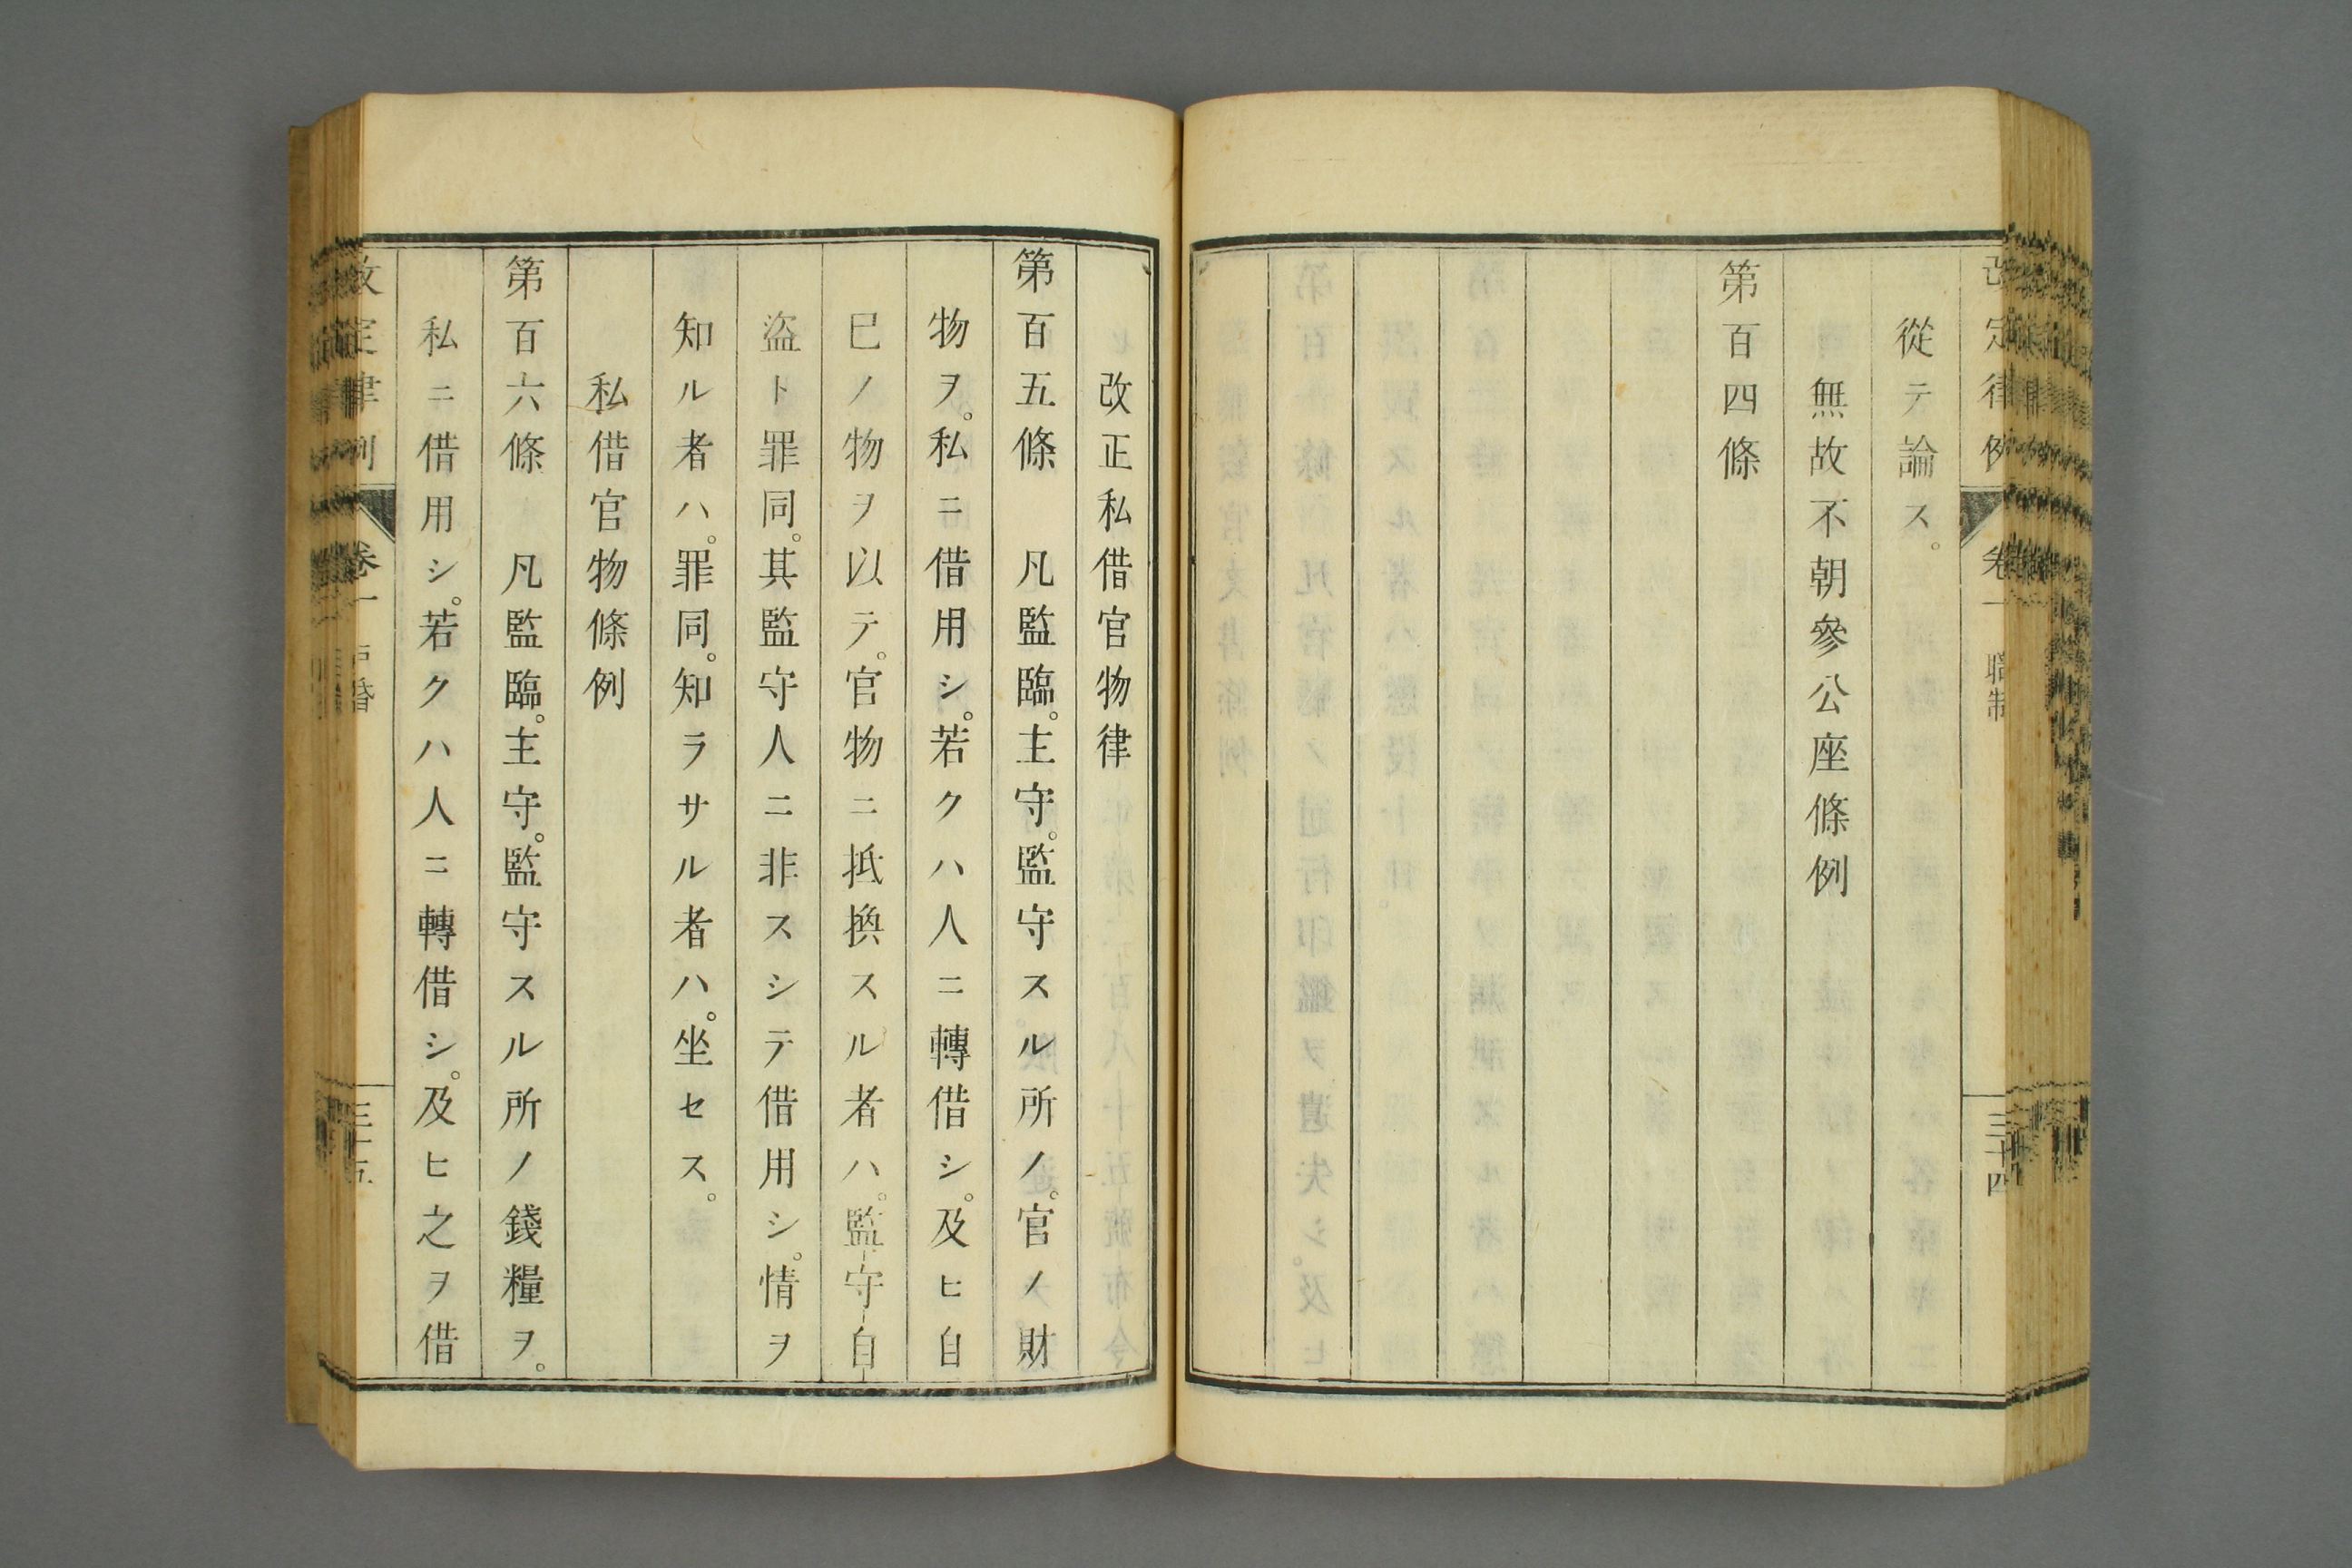 改定律例 卷一 職制 三十四
從テ論ス。
無故不朝參公座條例
第百四條
改正私借官物律
第百五條 凡監臨。主守。監守スル所ノ。官ノ財
物ヲ。私ニ借用シ。若クハ人ニ轉借シ。及ヒ自
已ノ物ヲ以テ。官物ニ抵換スル者ハ。監守自
盜ト罪同。其監守人ニ非スシテ借用シ。情ヲ
知ル者ハ。罪同。知ラサル者ハ。坐セス。
私借官物條例
第百六條 凡監臨。主守。監守スル所ノ錢糧ヲ。
私ニ借用シ。若クハ人ニ轉借シ。及ヒ之ヲ借
改定律例 卷一 戸婚 三十五